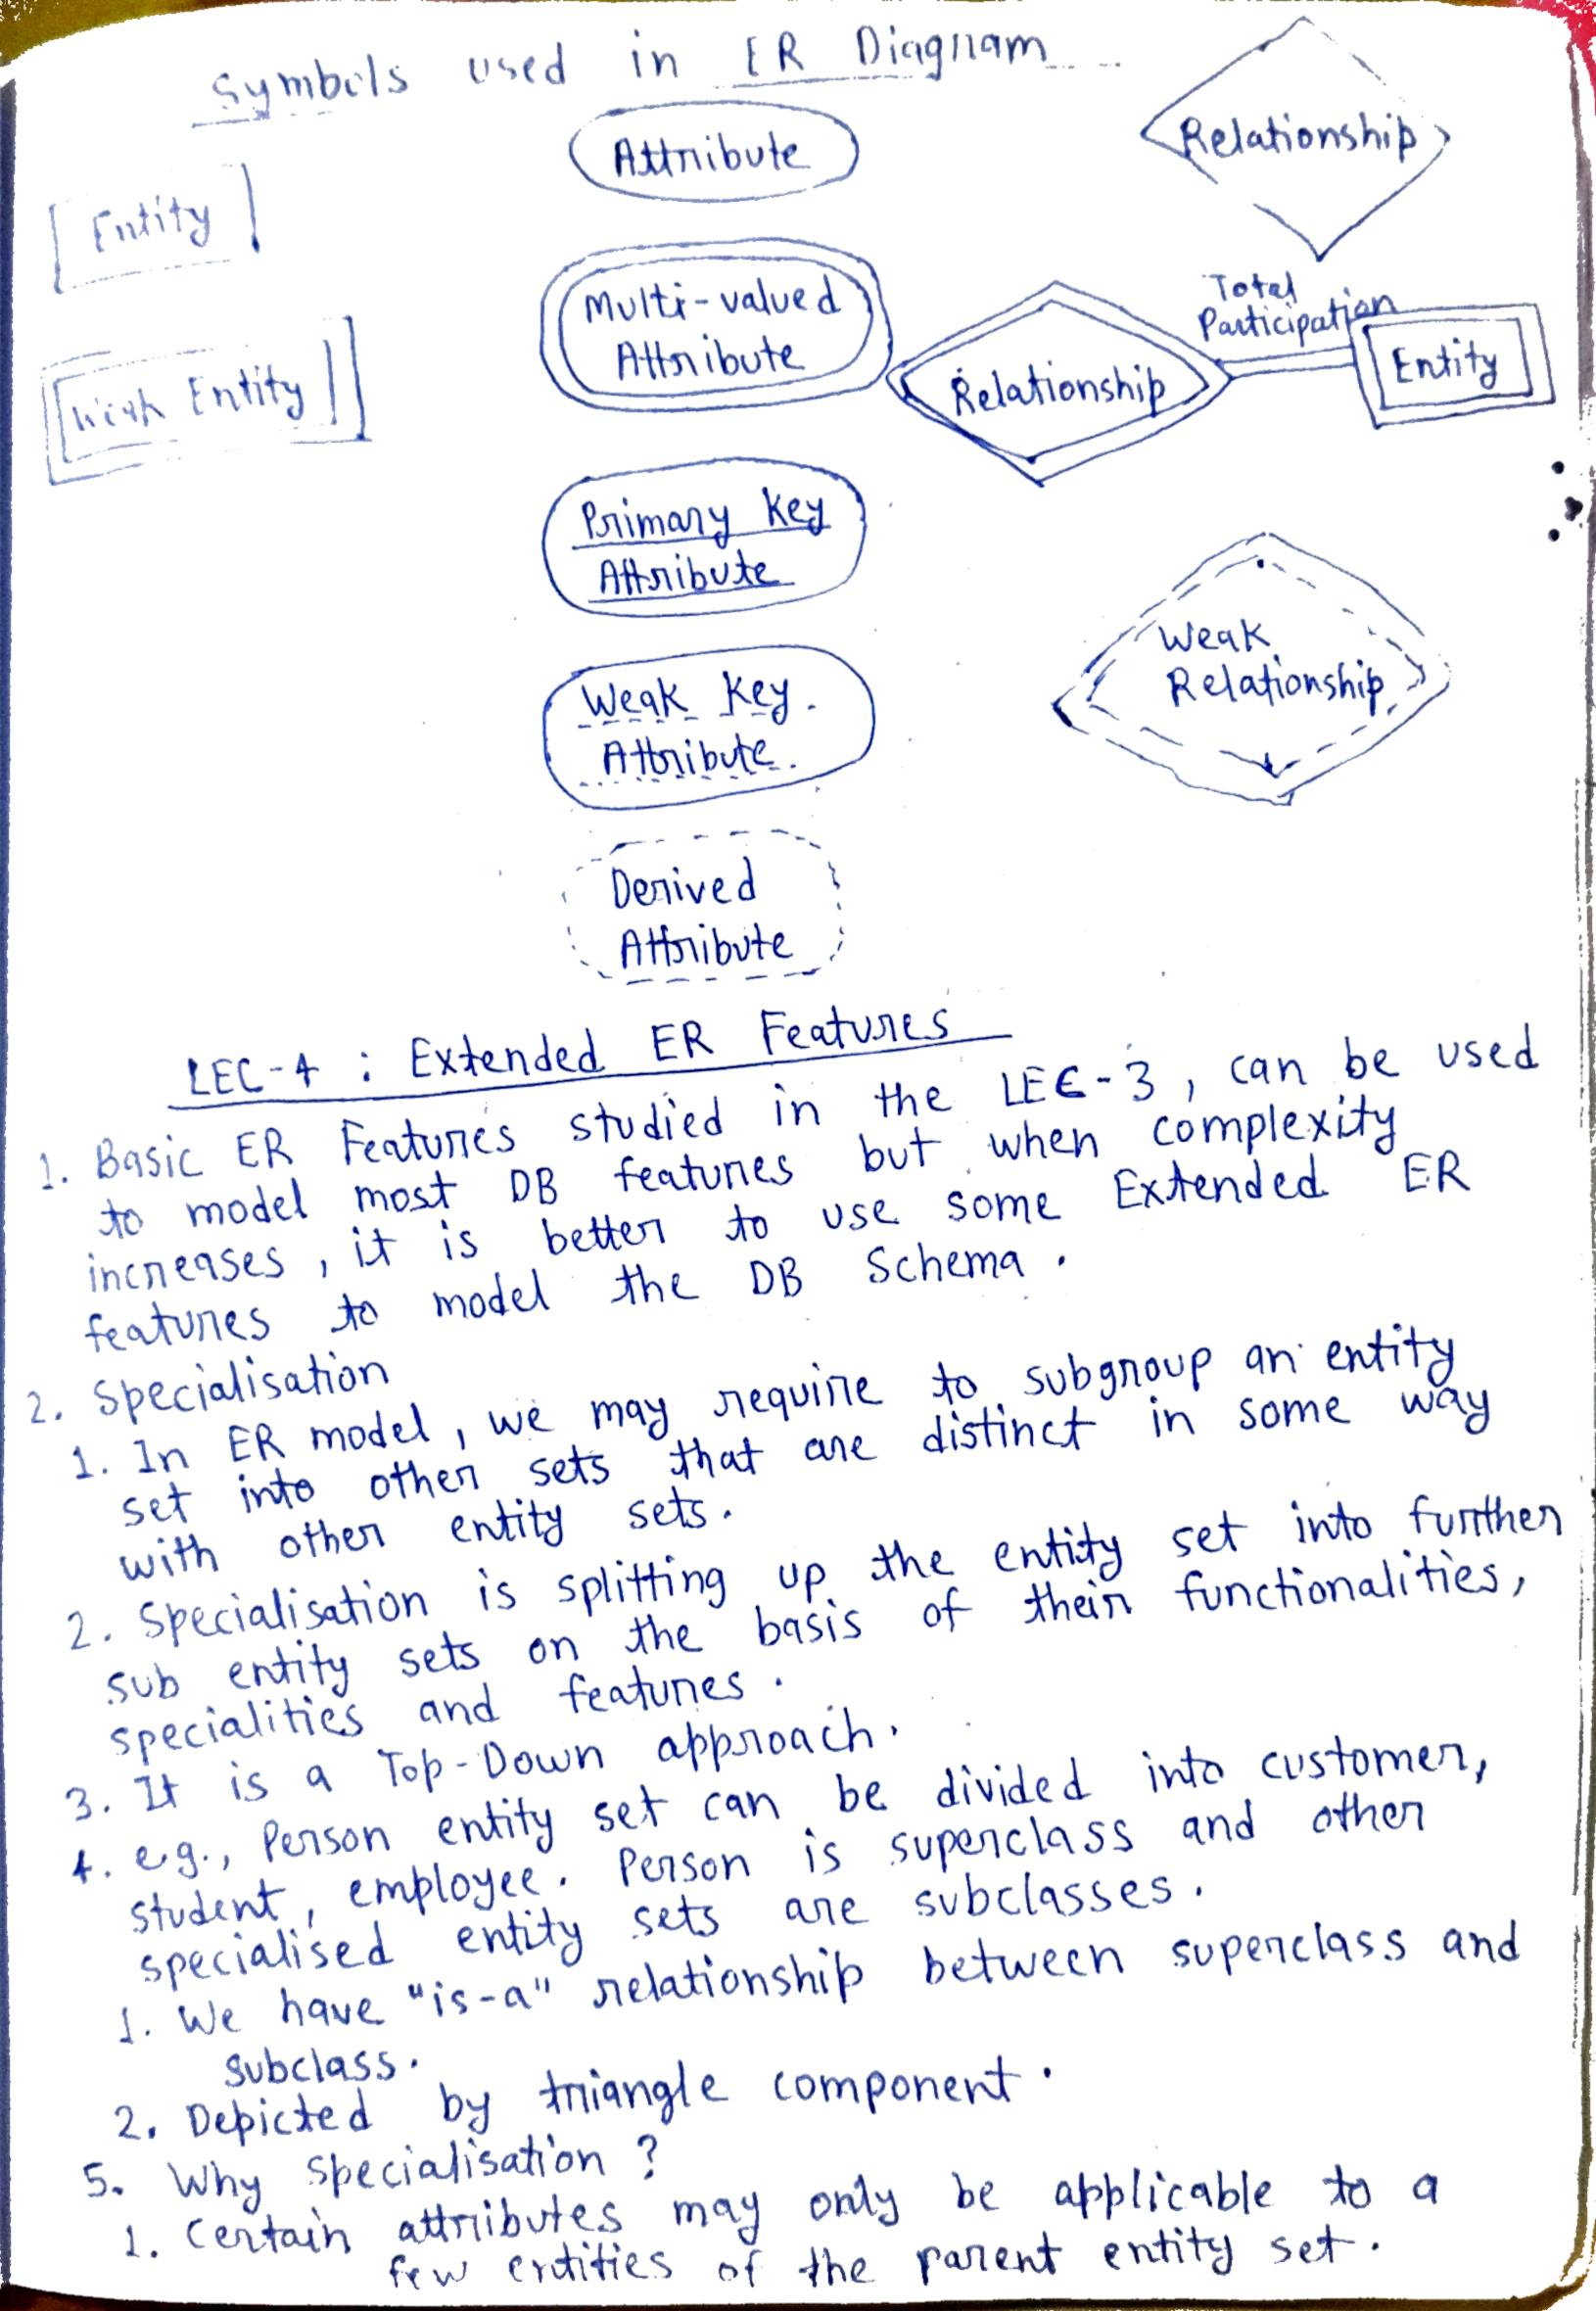 Symbols used in ER Diagram
Attribute
Relationship
Entity
Multi-valued
Attribute
Total
Participation
Relationship
Entity
Weak Entity
Primary Key
Attribute
Weak
Relationship
Weak Key
Attribute
Derived
Attribute
LEC-4 : Extended ER Features
1. Basic ER Features studied in the LEC-3, can be used
to model most DB features but when complexity
increases, it is better to use some Extended ER
features to model the DB Schema.
2. Specialisation
1. In ER model, we may require to subgroup an entity
set into other sets that are distinct in some way
with other entity sets.
2. Specialisation is splitting up the entity set into further
sub entity sets on the basis of their functionalities,
specialities and features.
3. It is a Top-Down approach.
4. e.g., Person entity set can be divided into customer,
student, employee. Person is superclass and other
specialised entity sets are subclasses.
1. We have "is-a" relationship between superclass and
subclass.
2. Depicted by triangle component.
5. Why Specialisation?
1. Certain attributes may only be applicable to a
few entities of the parent entity set.